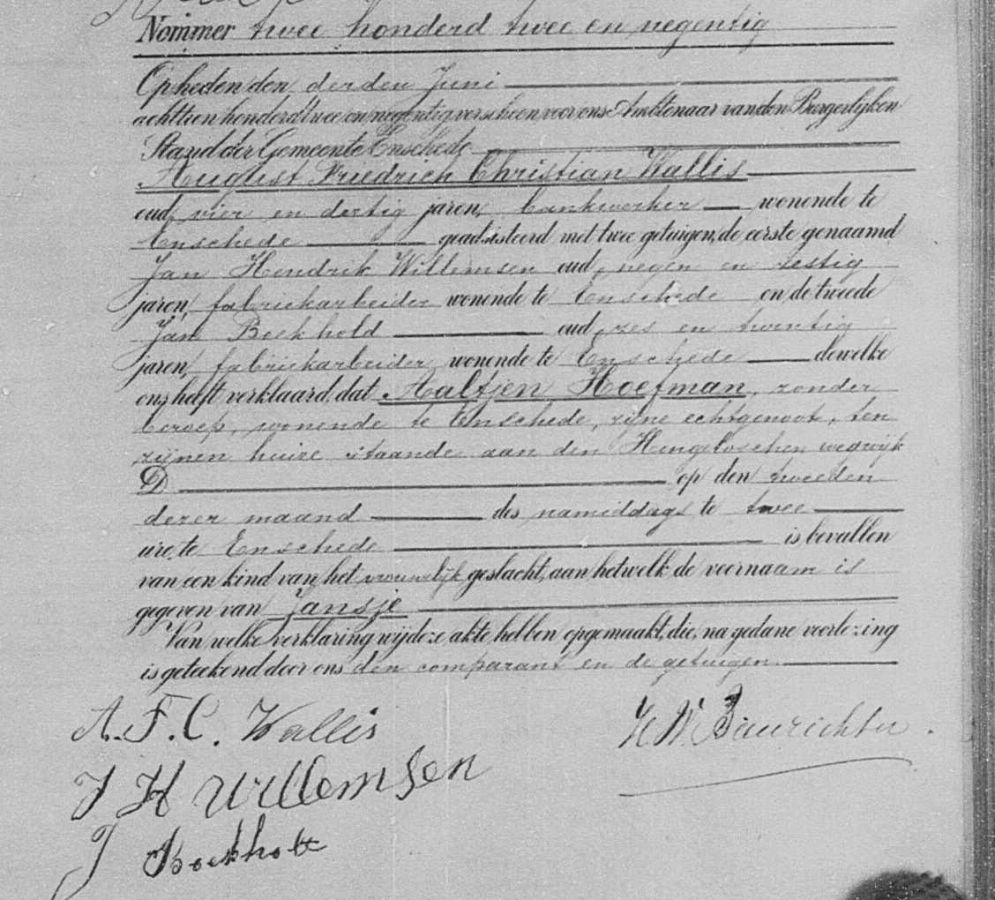 Nommer twee honderd twee en negentig
Op heden den derden Juni
achttien honderd twee en negentig verscheen voor ons Ambtenaar van den Burgerlijken
Stand der Gemeente Enschede
August Friedrich Christian Wallis
oud, vier en dertig jaren, bankwerker wonende te
Enschede geadsisteerd met twee getuigen, de eerste genaamd
Jan Hendrik Willemsen oud, negen en sestig
jaren, fabriekarbeider wonende te Enschede en de tweede
Jan Boekhold oud, zes en twintig
jaren, fabriekarbeider, wonende te Enschede dewelke
ons heeft verklaard dat Aaltjen Hoefman, zonder
beroep, wonende te Enschede, zijne echtgenoot, ten
zijnen huize staande aan den Hengeloschen wegwijk
D op den tweeden
dezer maand des namiddags te twee
ure, te Enschede is bevallen
van een kind van het vrouwelijk geslacht, aan hetwelk de voornaam is
gegeven van Jansje
Van welke verklaring wij deze akte hebben opgemaakt, die, na gedane voorlezing
is geteekend door ons den comparant en de getuigen.
A. F. C. Wallis
J H Willemsen
J Boekholt